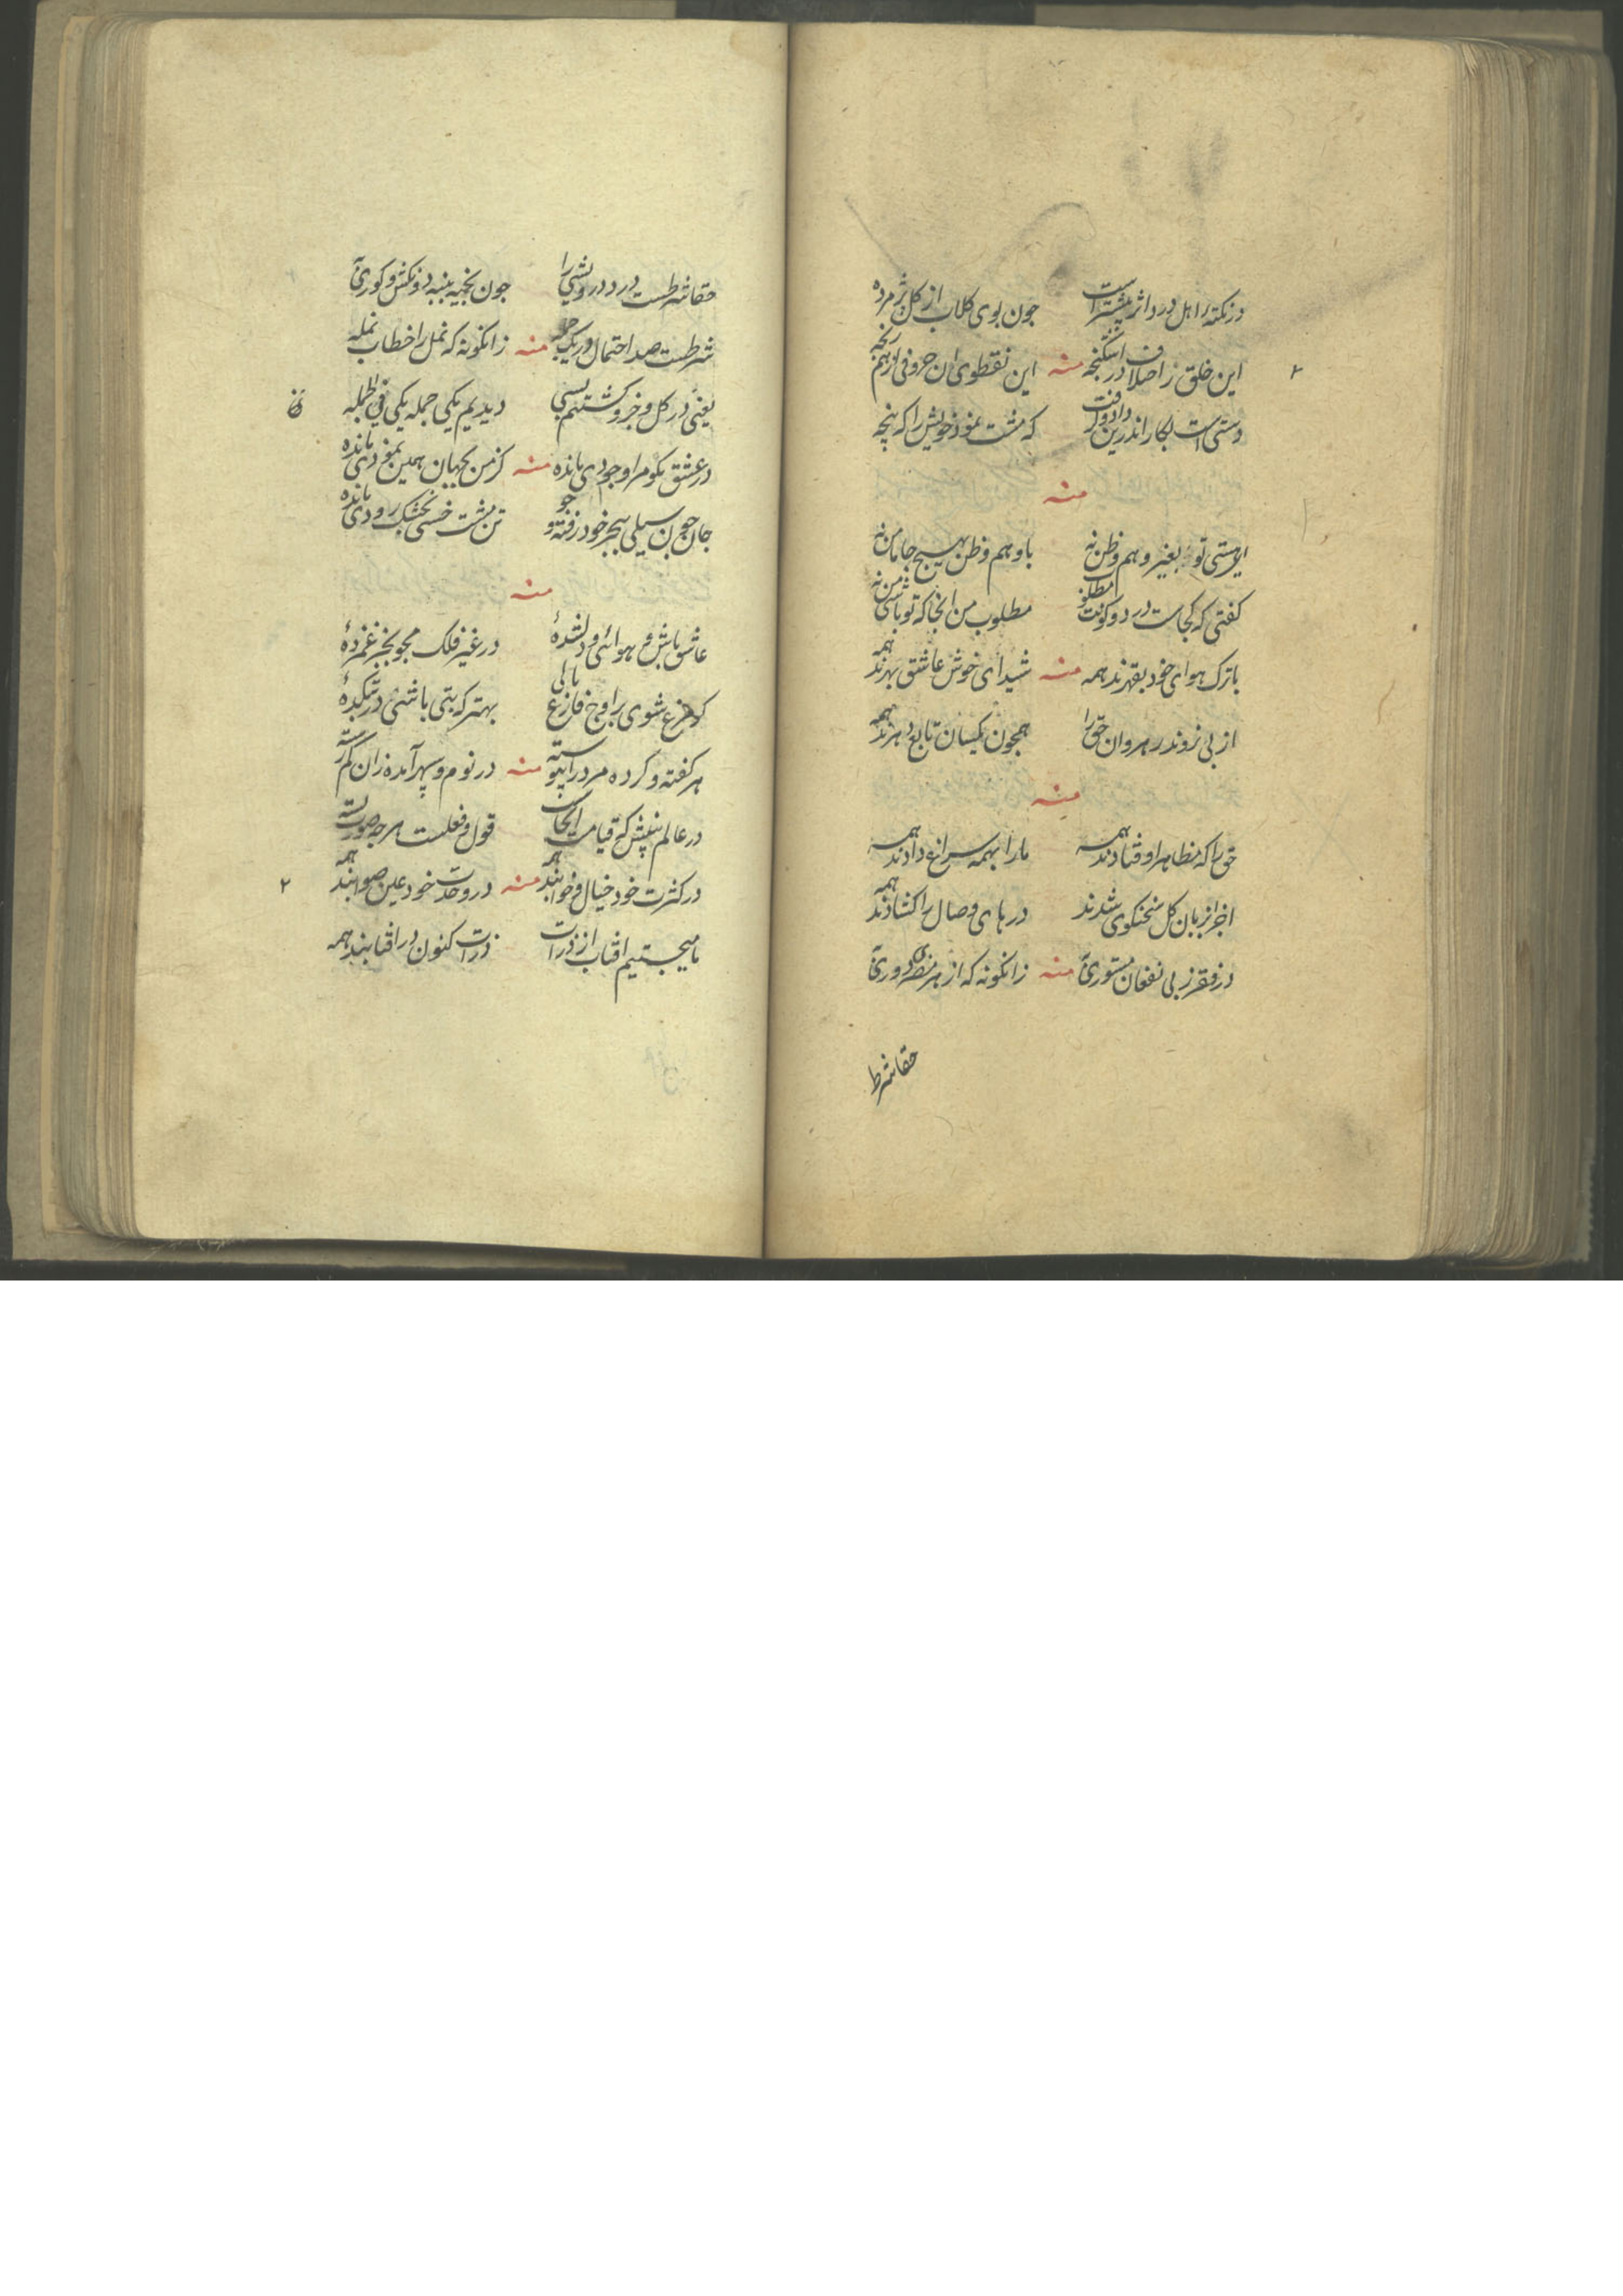 در نکته ز اهل درد اثر بیشتر است جون بوی کلاب از کل پژمرده
این خلق ز اختلاف در اشکنجه منه این نقطوی ان حروفی از هم رنجه
دستی است بکار اندرین که مشت نمود خویش را که پنجه
منه
ای هستی تو بغیر وهم وظن نه با وهم وظن هیچ جا مامن نه
کفتی که کجاست در دو کونت مطلوب مطلوب من انجا که تو باشی من نه
با ترک هوای خود بقهرند همه منه شیدای خوش عاشق بهرند همه
از پی نروند رهروان حق را همچون مکسان تابع هرند همه
منه
حق را که مظاهر اوفتادند همه ما را بهمه سراغ دادند همه
اجزا بزبان کل سخنکوی شدند درهای وصال را کشادند همه
در فقر ز بی نفعان مستوری به منه زانکونه که از هر مضر دوری به
حقا شرط
حقا شرطست درد درویشی را جون بخیه به پنبه دوز کفش و کوری به
شرطست صد احتمال در یک جمله منه زانکونه که نمل را خطاب نمله
یعنی در کل و جزو کشتیم بسی دیدیم یکی جمله یکی فی الجمله
در عشق مکو مرا وجودی مانده منه کز من بجهان همین نمودی مانده
جان جون سیلی ببحر خود رفته فرو تن مشت خسی بخشک رودی مانده
منه
عاشق باش و هوائی و دلشدهٔ در غیر فلک مجو بجز غمزدهٔ
کر مرغ شوی بر اوج فارغ بالی بهتر که بتی باشی در بتکدهٔ
هر کفته و کرده مرد را پیوسته منه در نوم و سهر آمده زان
در عالم بینش که قیامت انجاست قول و فعلست هر جه صورت بسته
در کثرت خود خیال و خوابند همه منه در وحدت خود عین صوابند همه
ما میجستیم افتاب از ذرات ذرات کنون در افتابند همه